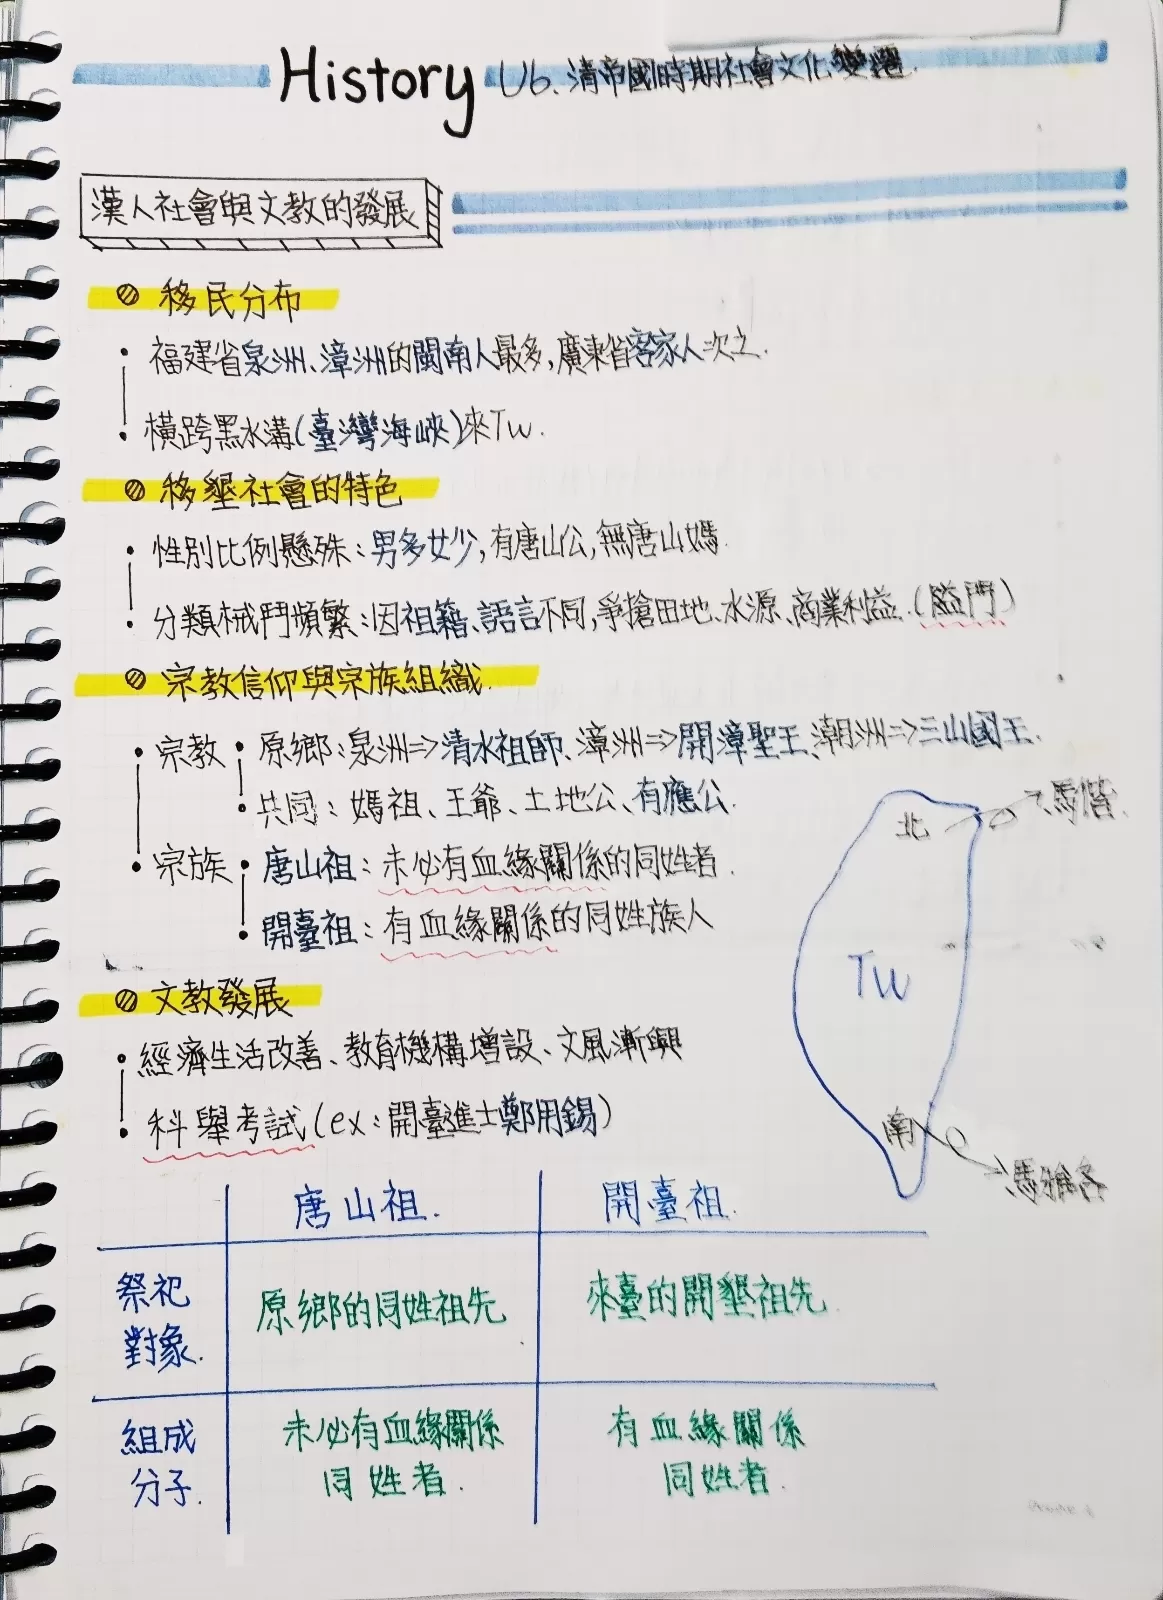 History U6. 清帝國時期社會文化變遷.
漢人社會與文教的發展
移民分布
福建省泉洲、漳洲的閩南人最多,廣東省客家人次之.
橫跨黑水溝(臺灣海峽)來TW.
移墾社會的特色
性別比例懸殊:男多女少,有唐山公,無唐山媽.
分類械鬥頻繁:因祖籍、語言不同,爭搶田地、水源、商業利益.(隘門)
宗教信仰與宗族組織.
宗教 原鄉:泉洲=>清水祖師、漳洲=>開漳聖王、潮洲=>三山國王.
共同:媽祖、王爺、土地公、有應公.
宗族 唐山祖:未必有血緣關係的同姓者.
開臺祖:有血緣關係的同姓族人
北 馬偕.
TW
南 馬雅各
文教發展
經濟生活改善、教育機構增設、文風漸興
科舉考試(ex:開臺進士鄭用錫)
唐山祖. 開臺祖.
祭祀對象. 原鄉的同姓祖先 來臺的開墾祖先.
組成分子. 未必有血緣關係同姓者. 有血緣關係同姓者.